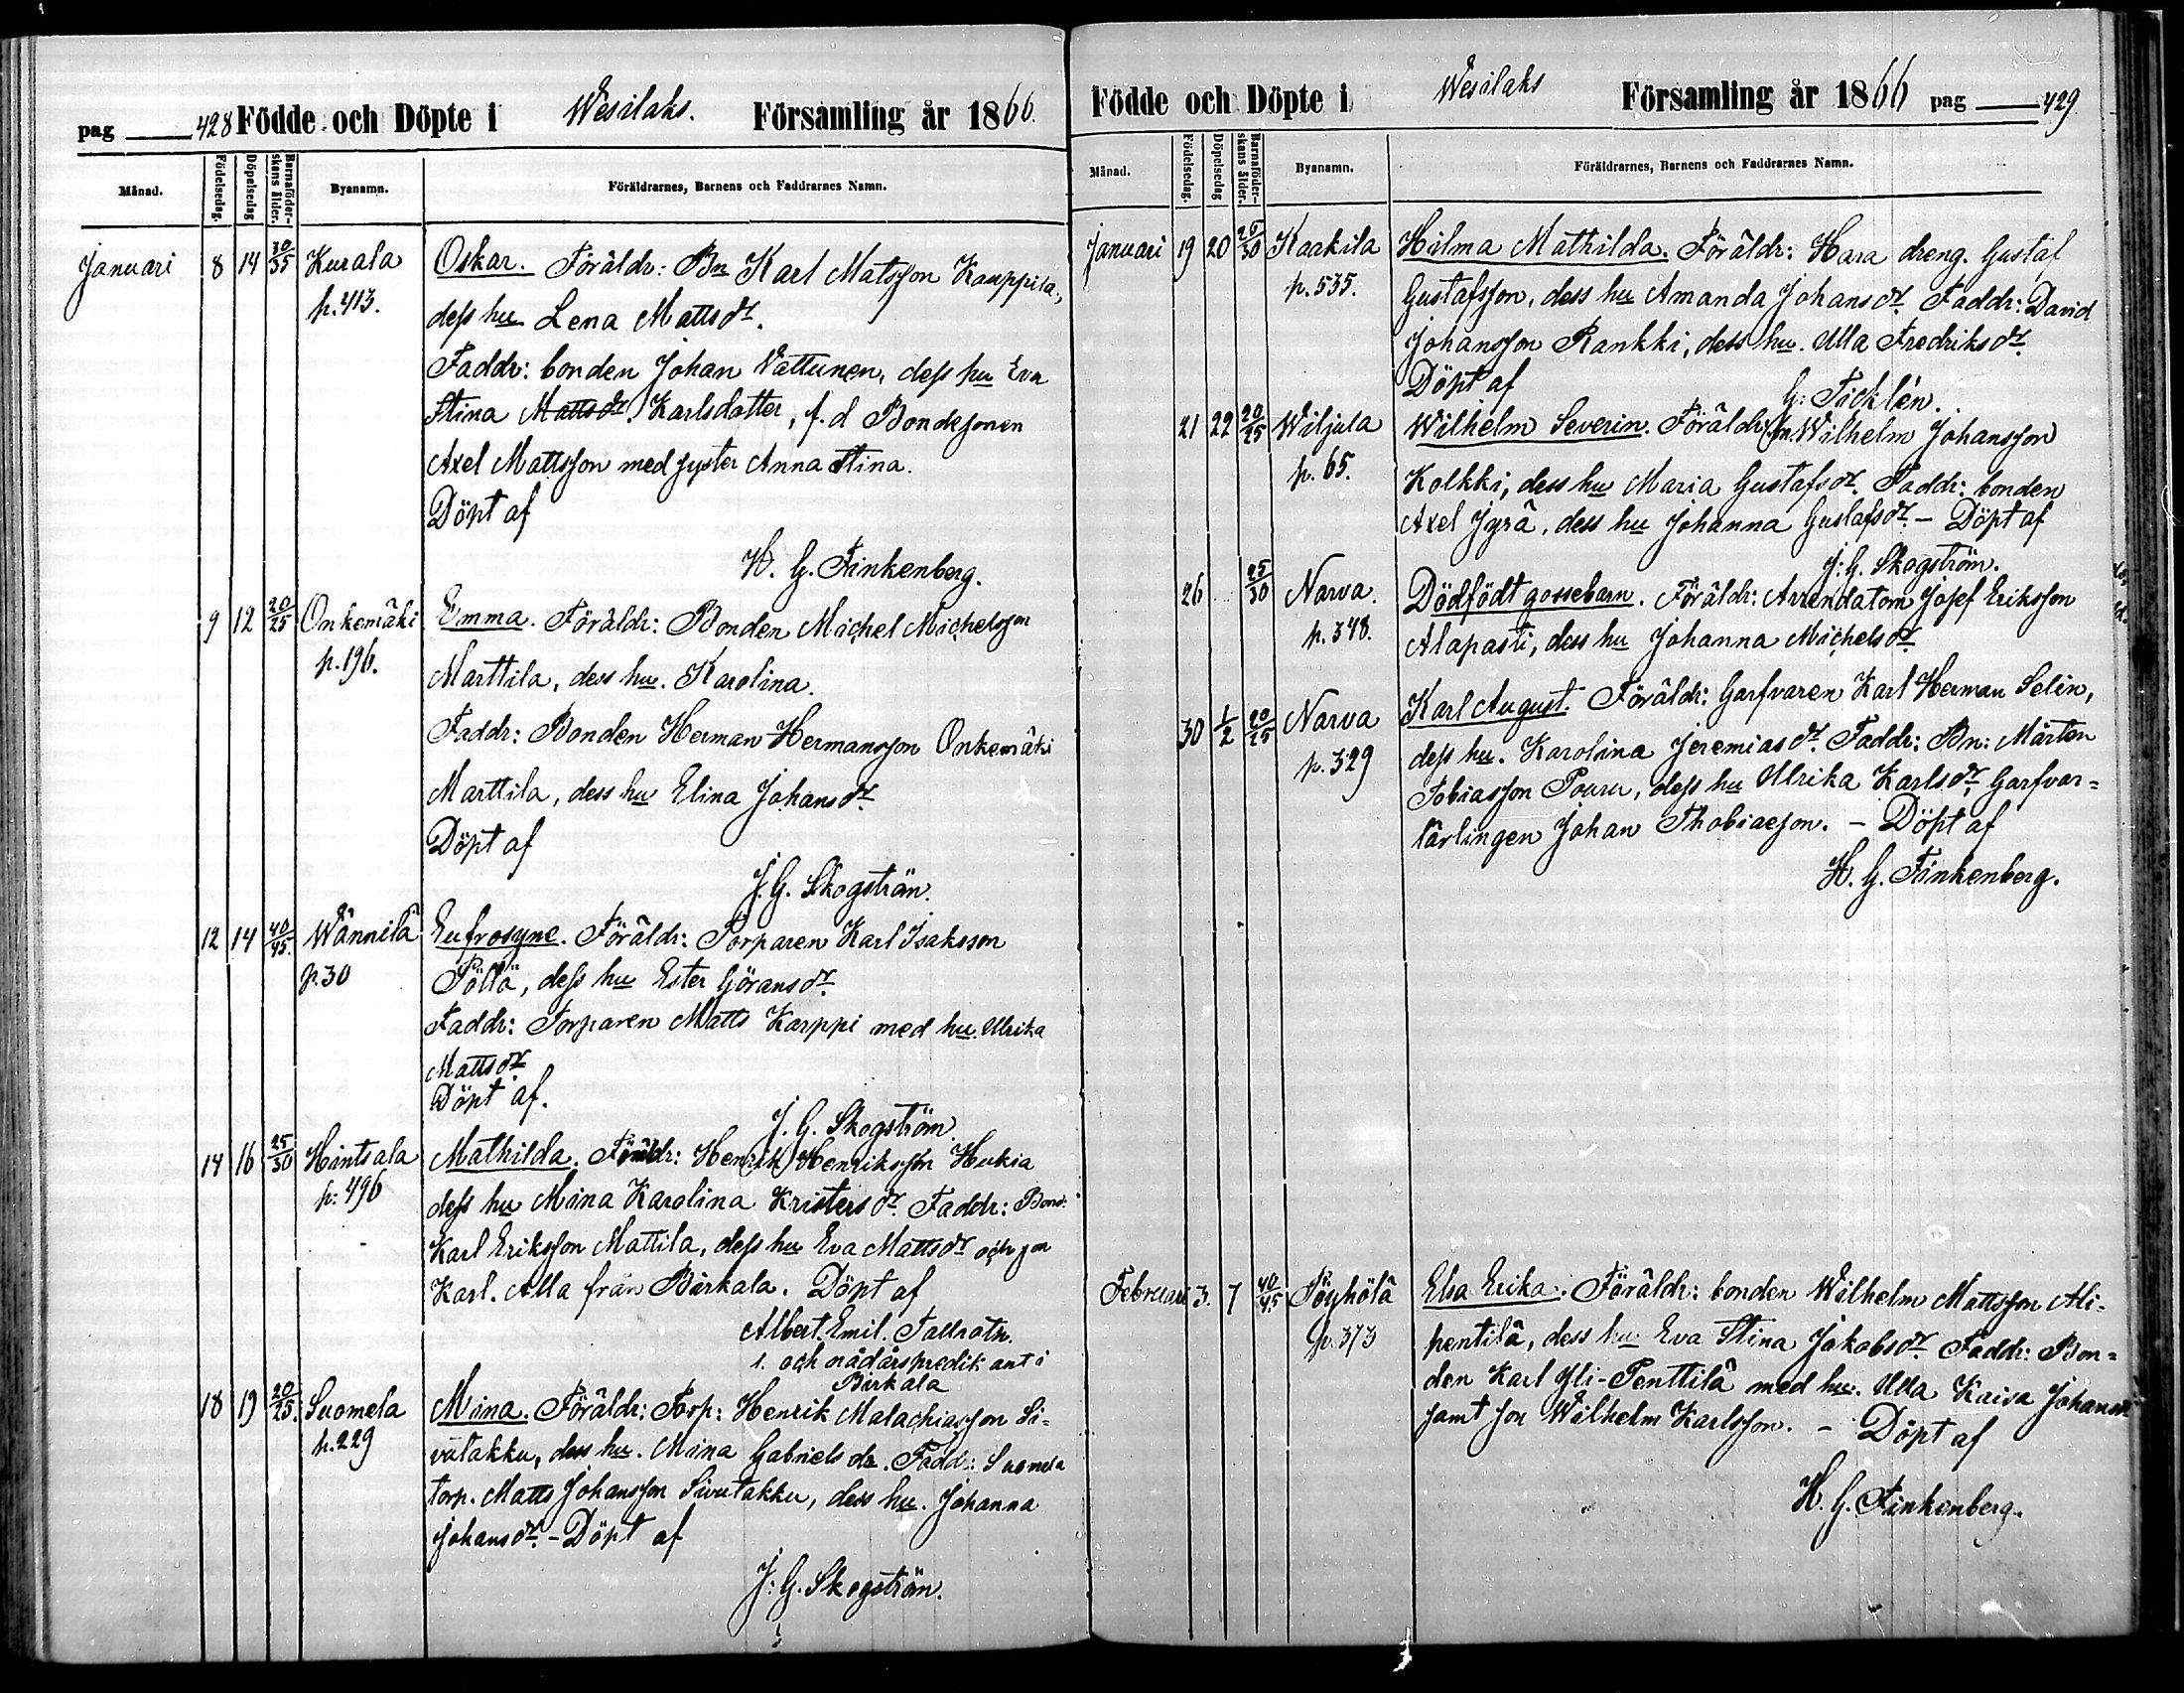 pag 428 Födde och Döpte i Wesilaks. Församling år 1866.
Månad. Födelsedag. Döpelsedag Barnaföder-skans ålder. Byanamn. Föräldrarnes, Barnens och Faddrarnes Namn.
Januari 8 14 30/35 Kurala Oskar. Föräldr: Bn Karl Matsson Kauppila,
p. 413. dess hu Lena Mattsdr.
Faddr: bonden Johan Nattunen, dess hu Eva
Stina Mattsdr Karlsdotter, f.d Bondesonen
Axel Mattsson med syster Anna Stina.
Döpt af
H. G. Finkenberg.
9 12 20/25 Onkemäki Emma. Föräldr: Bonden Michel Michelsson
p. 196. Marttila, dess hu. Karolina.
Faddr: Bonden Herman Hermansson Onkemäki
Marttila, dess hu Elina Johansdr.
Döpt af
J. G. Skogström.
12 14 40/45. Wännilä Eufrosyne. Föräldr: Torparen Karl Isaksson
p. 30 Pöllä, dess hu Ester Göransdr.
Faddr: Torparen Matts Karppi med hu. Ulrika
Mattsdr.
Döpt af.
J. G. Skogström
14 16 25/30 Hintsala Mathilda. Föräldr: Henrik Henriksson Hukia
p: 496 dess hu Mina Karolina Kristersdr. Faddr: Bond.
Karl Eriksson Mattila, dess hu Eva Mattsdr och son
Karl. Alla från Birkala. Döpt af
Albert. Emil. Tallroth.
s. och nådårspredikant i
Birkala
18 19 20/25. Suomela Mina. Föräldr: Torp: Henrik Malachiasson Si-
p. 229 vutakku, dess hu. Mina Gabrielsdr. Faddr: Suomela
torp. Matts Johansson Sivutakku, dess hu. Johanna
Johansdr. - Döpt af
J: G. Skogström.
Födde och Döpte i Wesilaks Församling år 1866 pag 429.
Månad. Födelsedag. Döpelsedag Barnaföder-skans ålder. Byanamn. Föräldrarnes, Barnens och Faddrarnes Namn.
Januari 19 20 25/30 Kaakila Hilma Mathilda. Föräldr: Hara dreng. Gustaf
p. 535. Gustafsson, dess hu Amanda Johansdr. Faddr: David
Johansson Rankki, dess hu. Ulla Fredriksdr.
Döpt af
G: Ticklén.
21 22 20/25 Wiljula Wilhelm Severin. Föräldr: Wilhelm Johansson
p. 65. Kolkki, dess hu Maria Gustafsdr. Faddr: bonden
Axel Jyrä, dess hu Johanna Gustafsdr. - Döpt af
J: G. Skogström.
26 25/30 Narva. Dödfödt gossebarn. Föräldr: Arrendatorn Josef Eriksson
p. 348. Alapasti, dess hu Johanna Michelsdr
30 1/2 20/25 Narva Karl August. Föräldr: Garfvaren Karl Herman Selin,
p. 329 dess hu. Karolina Jeremiasdr. Faddr: Bn: Mårten
Tobiasson Pouru, dess hu Ulrika Karlsdr. Garfvar=
lärlingen Johan Thobiaeson. - Döpt af
H. G. Finkenberg.
Februari 3. 7 40/45 Pöyhölä Elsa Erika. Föräldr: bonden Wilhelm Mattsson Ali-
p. 373 pentilä, dess hu Eva Stina Jakobsdr. Faddr: Bon=
den Karl Yli-Penttilä med hu. Ulla Kaisa Johansdr
samt son Wilhelm Karlsson. - Döpt af
H. G. Finkenberg.